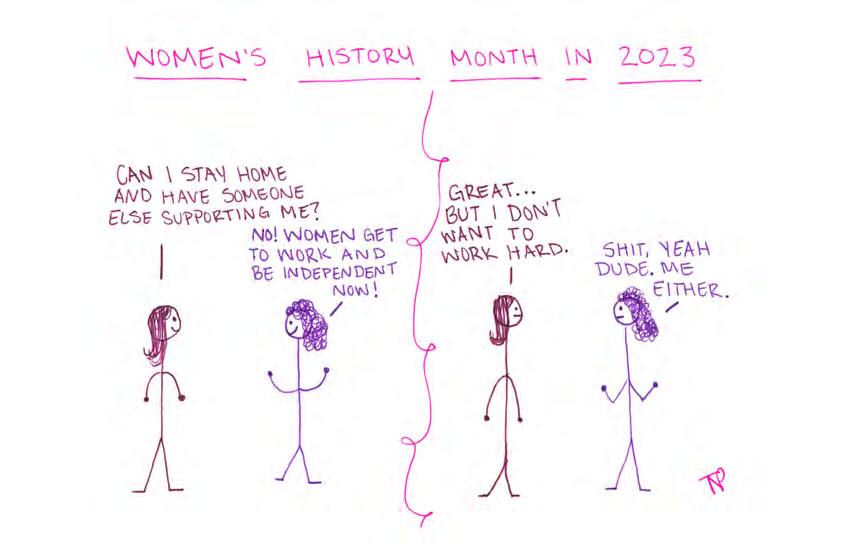 WOMEN'S HISTORY MONTH IN 2023
CAN I STAY HOME
AND HAVE SOMEONE
ELSE SUPPORTING ME?
NO! WOMEN GET
TO WORK AND
BE INDEPENDENT
NOW!
GREAT...
BUT I DON'T
WANT TO
WORK HARD.
SHIT, YEAH
DUDE. ME
EITHER.